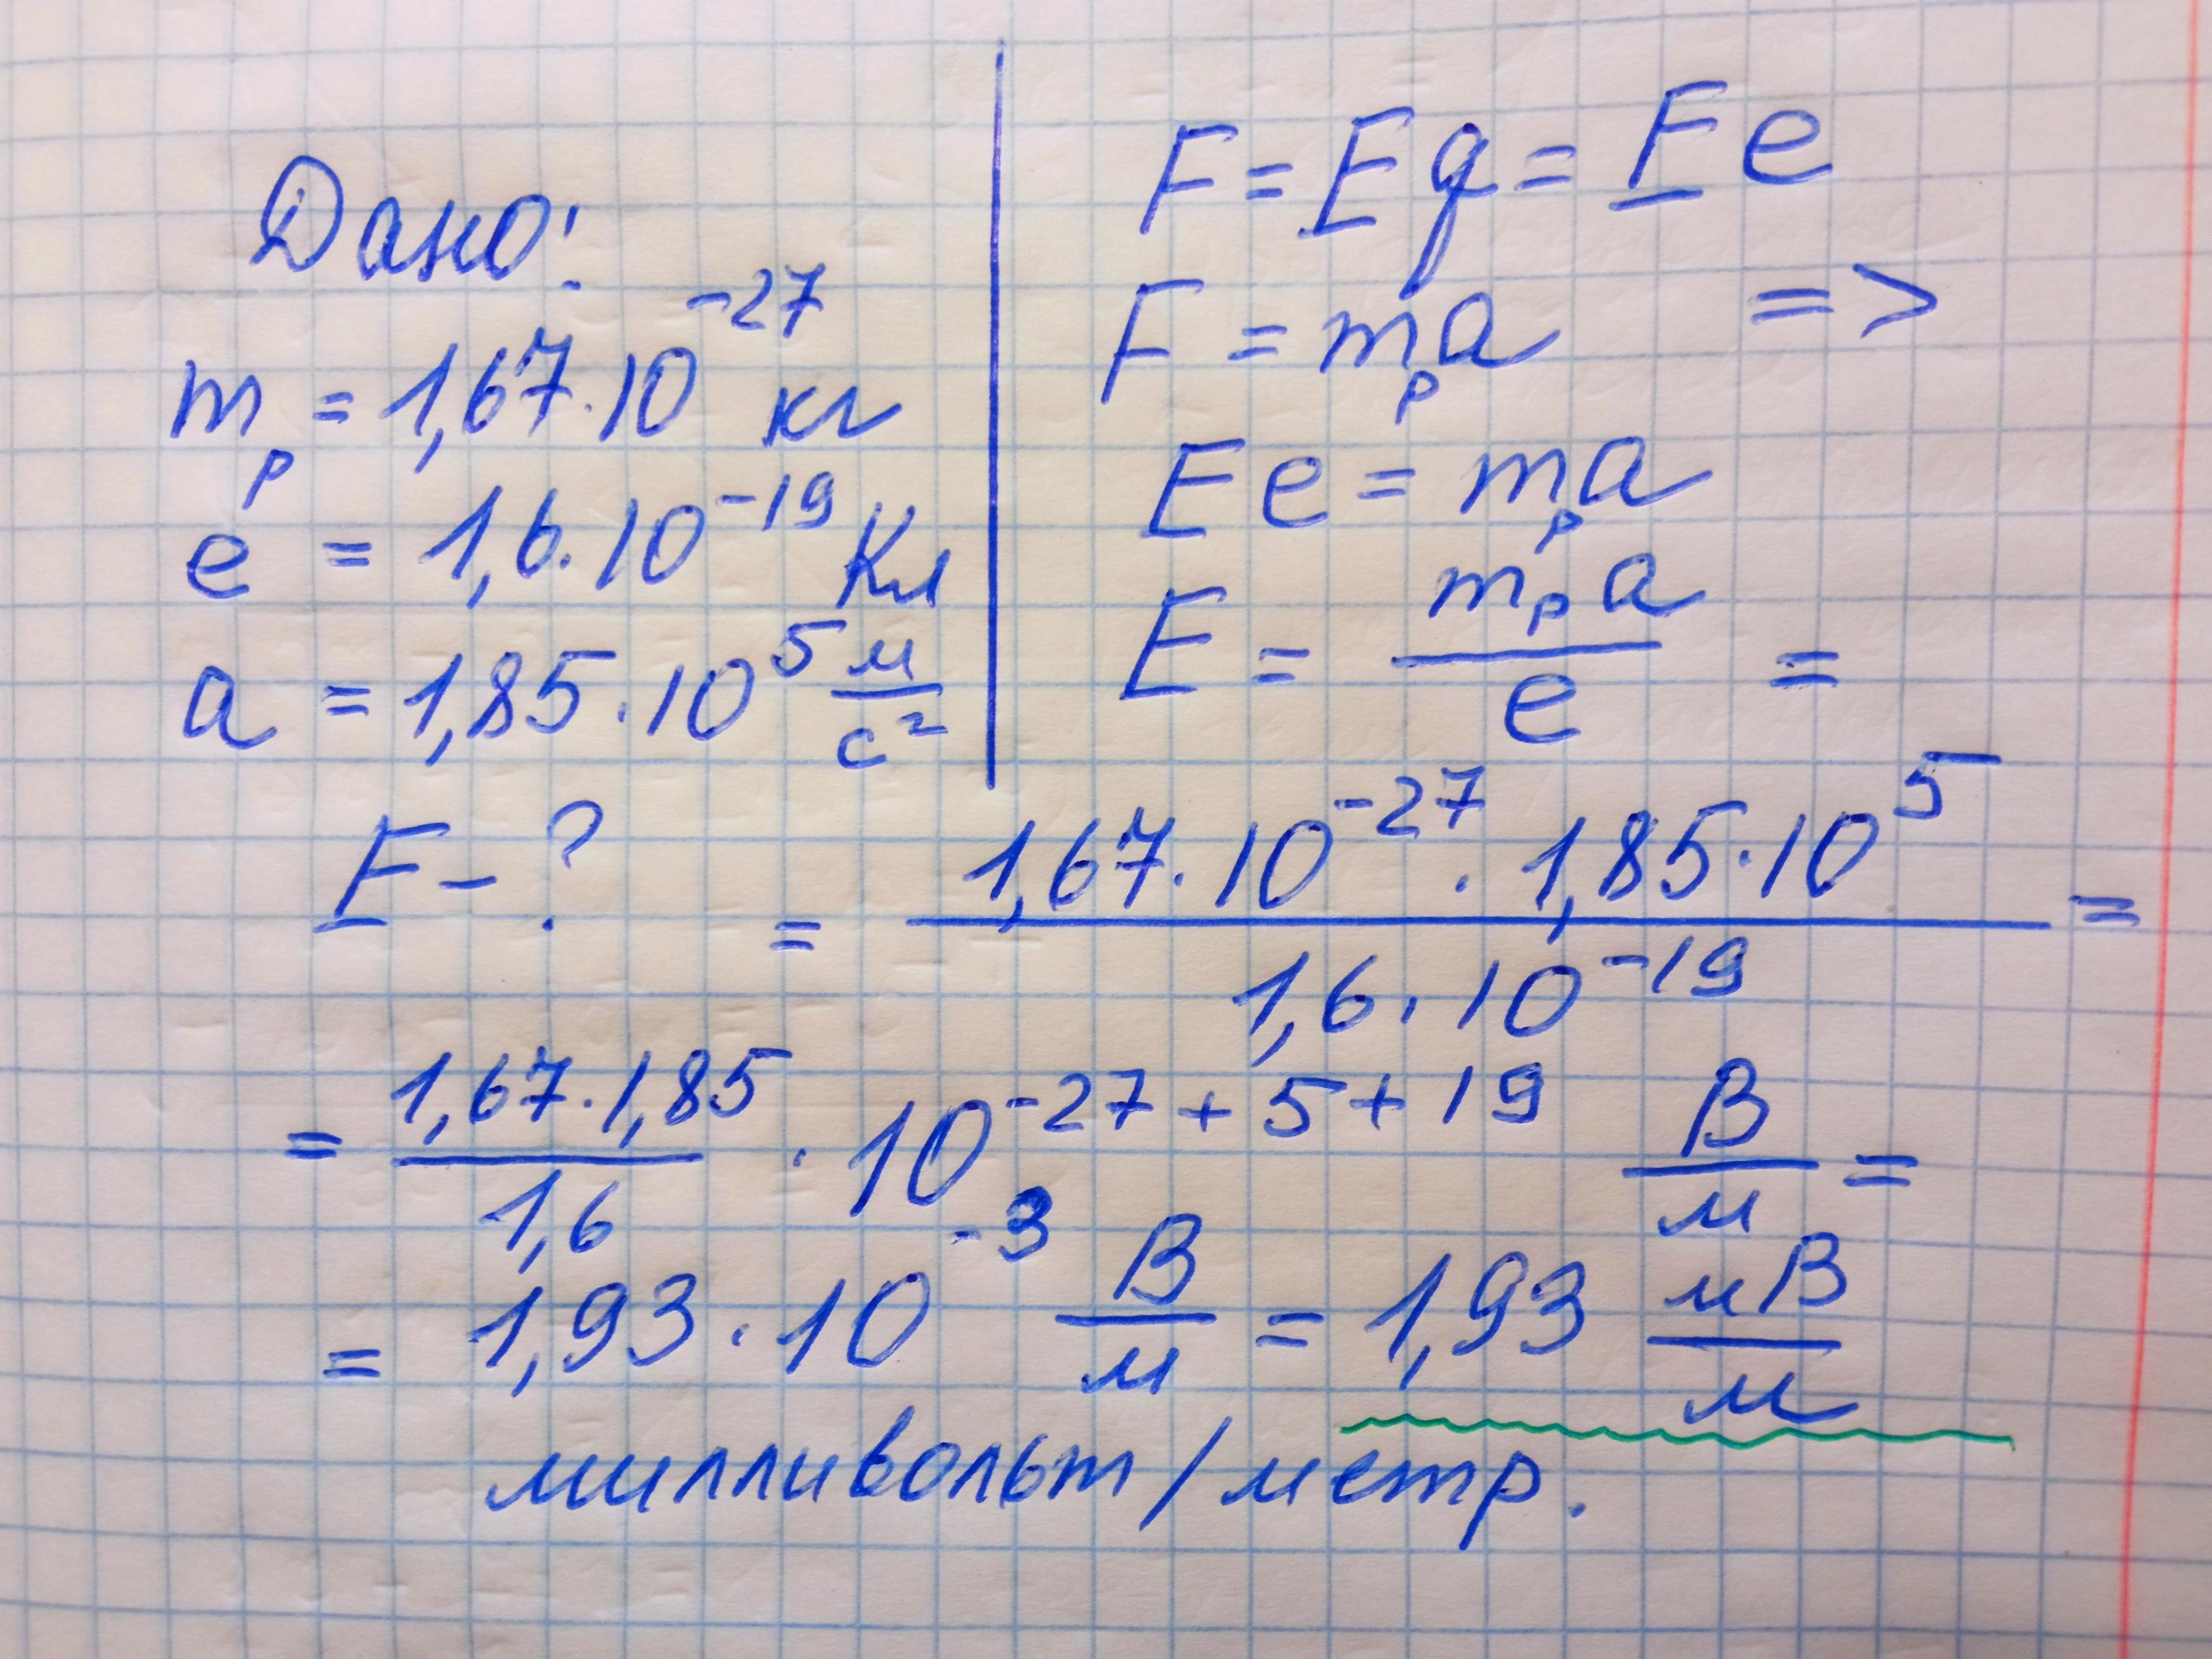 Дано:
m_p = 1,67·10^-27 кг
e = 1,6·10^-19 Кл
a = 1,85·10^5 м/с^2
E - ?
F = Eq = Ee
F = m_p a =>
Ee = m_p a
E = m_p a / e =
= 1,67·10^-27 · 1,85·10^5 / 1,6·10^-19 =
= 1,67·1,85 / 1,6 · 10^-27+5+19 В/м =
= 1,93·10^-3 В/м = 1,93 мВ/м
милливольт/метр.